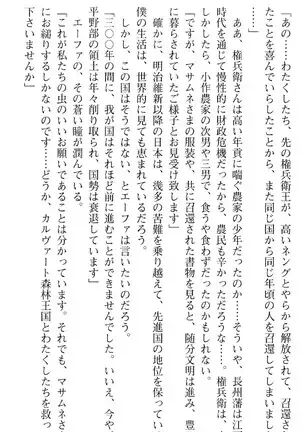 「あの……わたくしたち、先の権兵衛王が、高いネングとやらから解放され
たことを喜んでいらしたことから、また同じ国から同じ年頃の人を召還してしまいまし
ああ、権兵衛さんは高い年貢に喘ぐ農家の少年だったのか……そういや、長州藩は江
時代を通じて慢性的に財政危機だったから、農民も辛かっただろうな……。権兵衛は、
しかしたら、小作農家の次男や三男で、食うや食わずだったのかもしれない。
「ですが、マサムネさまの服装や、共に召還された書物を見ると、随分文明は進み、豊
に暮らされていたご様子とお見受け致します」
確かに、明治維新以降の日本は、幾多の苦難を乗り越えて、先進国の地位を保ってい
僕の生活は、世界的に見ても恵まれているだろう。
しかし、この国はそうではない、とエーファは言いたいのだろう。
「三〇〇年の間に、我が国はそれほど前に進むことができませんでした。いいえ、今や
平野部の領土は年々削り取られ、国勢は衰退しています」
エーファの、その蒼い瞳が潤んでいる。
「これが私たちの虫のいいお願いであることは分かっています。それでも、マサムネさ
にお縋りするしかないのです……どうか、カルヴァート森林王国とわたくしたちを救っ
下さいませんか」